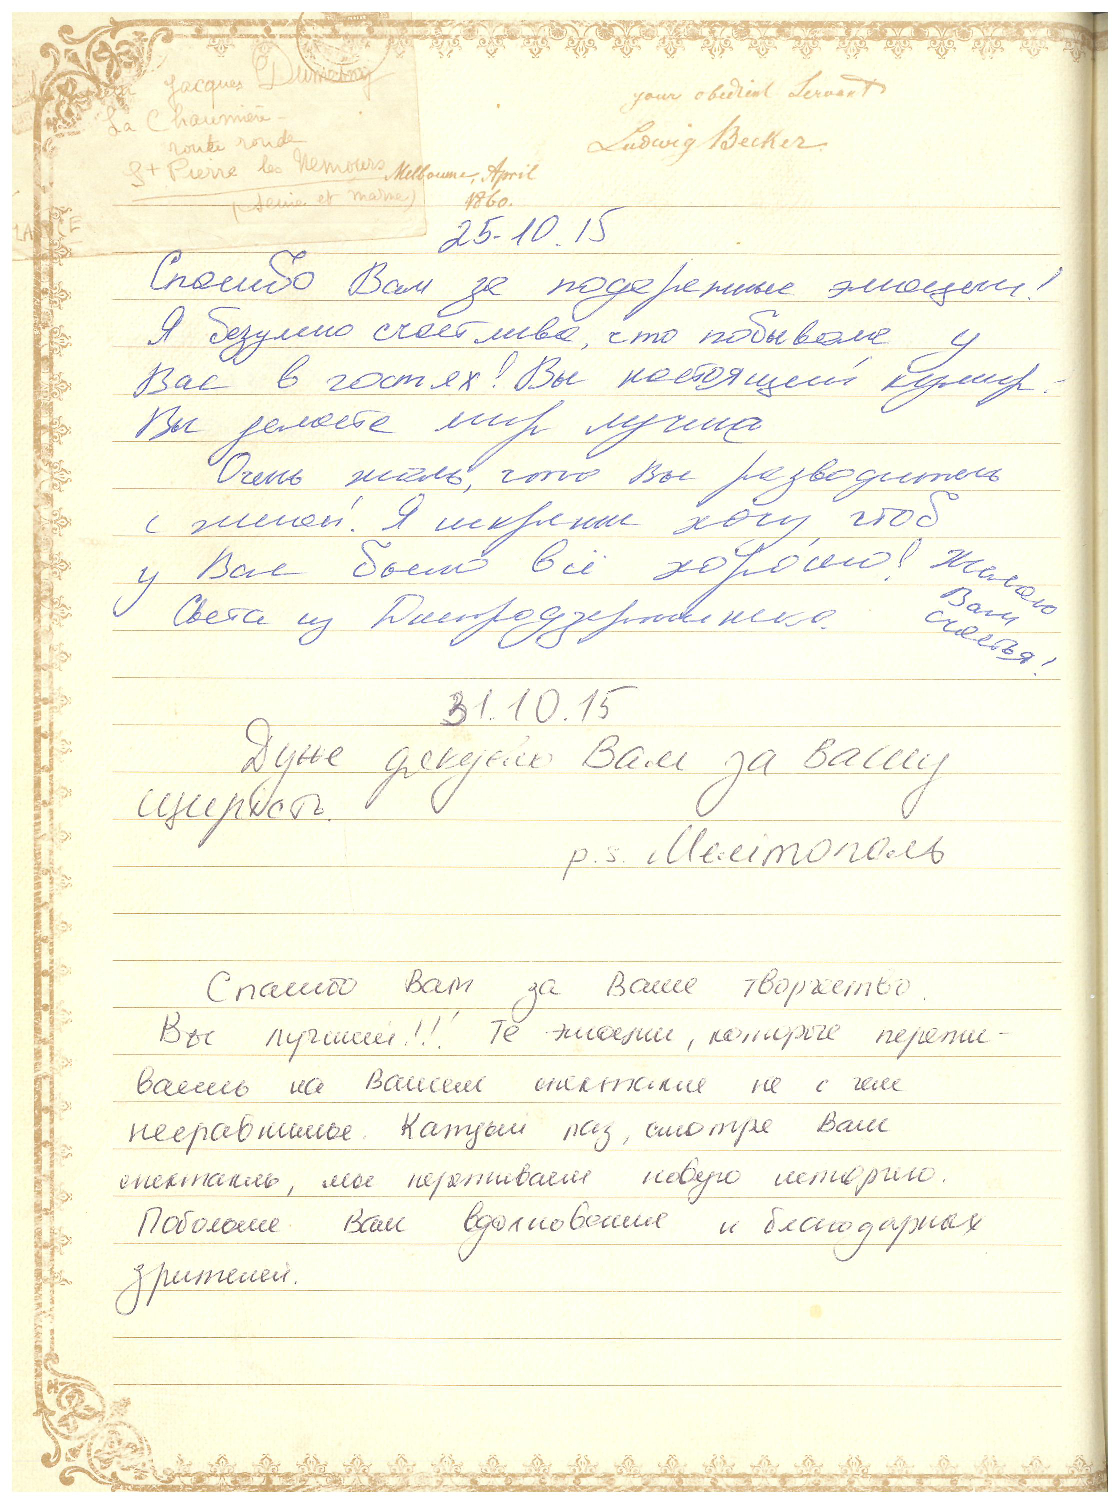 Jacques Dumesny
La Chaumière -
route ronde
St Pierre les Nemours
(Seine et marne)
your obedient Servant
Ludwig Becker.
Melbourne, April
1860.
25.10.15
Спасибо Вам за подаренные эмоции!
Я безумно счастлива, что побывала у
Вас в гостях! Вы настоящий кумир.
Вы делаете мир лучше
Очень жаль, что Вы разводитесь
с женой. Я искренне хочу, чтоб
у Вас было всё хорошо! Желаю
Вам
счастья!
Света из Днепродзержинска.
31.10.15
Дуже дякую Вам за Вашу
щирість.
p.s. Мелітополь
Спасибо Вам за Ваше творчество.
Вы лучший!!! Те эмоции, которые пережи-
ваешь на Вашем спектакле не с чем
несравнимые. Каждый раз, смотря Ваш
спектакль, мы переживаем новую историю.
Побольше Вам вдохновения и благодарных
зрителей.